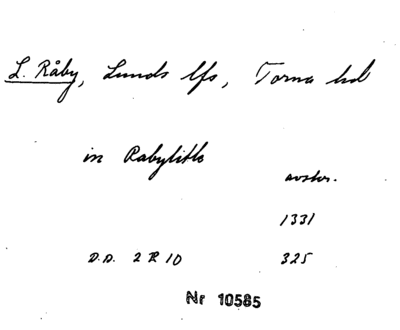 L. Råby, Lunds lfs, Torna hd
in Rabylitle
avskr.
1331
D.D. 2 R 10 325
Nr 10585